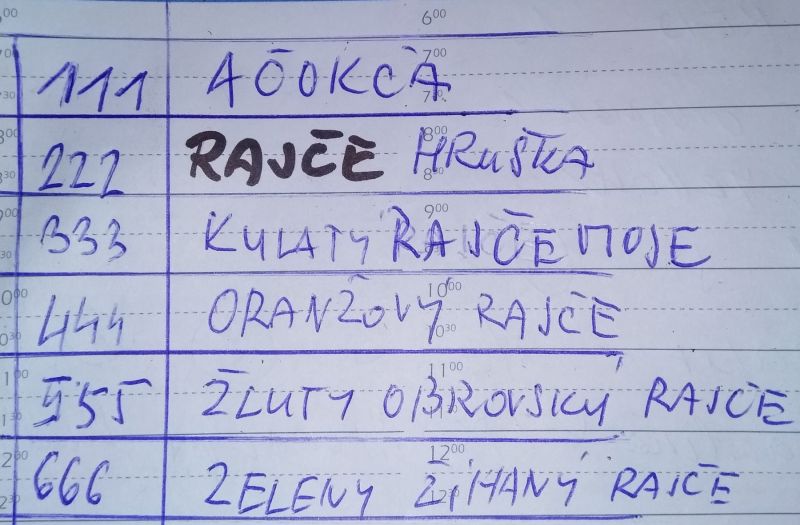 6⁰⁰
111 AÓOKCA 7⁰⁰
222 RAJČE HRUŠKA 8⁰⁰
333 KULATÝ RAJČE MOJE 9⁰⁰
444 ORANŽOVÝ RAJČE 10⁰⁰
555 ŽLUTY OBROVSKÝ RAJČE 11⁰⁰
666 ZELENY ŽIHANÝ RAJČE 12⁰⁰